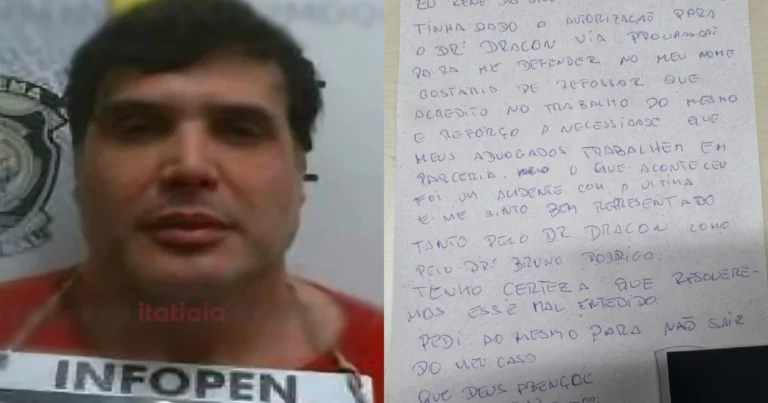 itatiaia
INFOPEN
EU RENE DA
TINHA DADO O AUTORIZAÇÃO PARA
O DR: DRACON VIA PROCURAÇÃO
PARA ME DEFENDER NO MEU NOME
GOSTARIA DE REFOSSAR QUE
ACREDITO NO TRABALHO DO MESMO
E REFORÇO A NECESSIDADE QUE
MEUS ADVOGADOS TRABALHEM EM
PARCERIA. O QUE ACONTECEU
FOI UM ACIDENTE COM A VITIMA
E ME SINTO BEM REPRESENTADO
TANTO PELO DR DRACON COMO
PELO DR: BRUNO RODRIGO.
TENHO CERTEZA QUE RESOLVERE-
MOS ESSE MAL ENTEDIDO
PEDI AO MESMO PARA NÃO SAIR
DO MEU CASO
QUE DEUS ABENÇOE